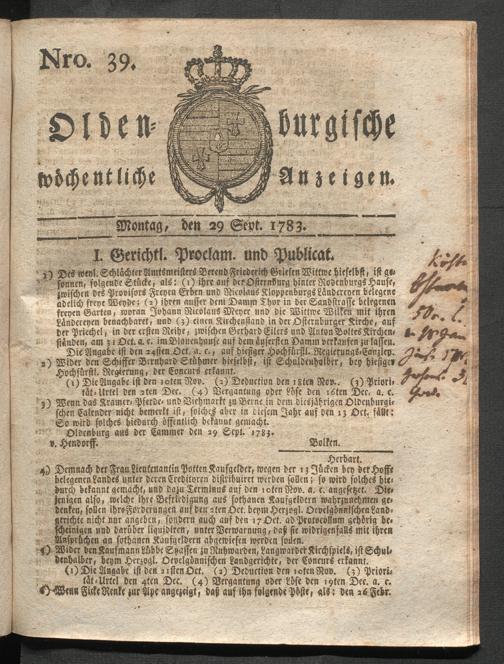 Nro. 39.
Olden- burgische
wöchentliche Anzeigen.
Montag, den 29 Sept. 1783.
I. Gerichtl. Proclam. und Publicat.
1) Des weyl. Schlächter Amtsmeisters Berend Friederich Griesen Wittwe hieselbst, ist ge-
sonnen, folgende Stücke, als: (1) ihre auf der Osternburg hinter Rodenburgs Hause,
zwischen des Provisors Freyen Erben und Nicolaus Kloppenburgs Ländereyen belegene
adelich freye Weyde; (2) ihren ausser dem Damm Thor in der Sandstraße belegenen
freyen Garten, woran Johann Nicolaus Meyer und die Wittwe Wilken mit ihren
Ländereyen benachbaret, und (3) einen Kirchenstand in der Osternburger Kirche, auf
der Priechel, in der ersten Reihe, zwischen Gerhard Eilers und Anton Boltes Kirchen-
ständen, am 31 Oct. a. c. im Blauenhause auf dem äussersten Damm verkaufen zu lassen.
Die Angabe ist den 24sten Oct. a. c. auf hiesiger Hochfürstl. Regierungs-Canzley.
2) Wider den Schiffer Bernhard Stühmer hieselbst, ist Schuldenhalber, bey hiesiger
Hochfürstl. Regierung, der Concurs erkannt.
(1) Die Angabe ist den 10ten Nov. (2) Deduction den 18ten Nov. (3) Priori-
tät-Urtel den 2ten Dec. (4) Vergantung oder Löse den 16ten Dec. a. c.
3) Wenn das Kramer- Pferde- und Viehmarkt zu Berne in dem diesjährigen Oldenburgi-
schen Calender nicht bemerkt ist, solches aber in diesem Jahr auf den 13 Oct. fällt:
So wird solches hiedurch öffentlich bekannt gemacht.
Oldenburg aus der Cammer den 29 Sept. 1783.
v. Hendorff. Bolken.
Herbart.
4) Demnach der Frau Lieutenantin Potten Kaufgelder, wegen der 13 Jücken bey der Hoffe
belegenen Landes unter deren Creditoren distribuiret werden sollen; so wird solches hie-
durch bekannt gemacht, und dazu Terminus auf den 10ten Nov. a. c. angesetzt. Die-
jenigen also, welche ihre Befridigung aus sothanen Kaufgeldern wahrzunehmen ge-
denken, sollen ihre Forderungen auf den 2ten Oct. beym Herzogl. Oevelgönnischen Land-
gerichte nicht nur angeben, sondern auch auf den 17 Oct. ad Protocollum gehörig be-
scheinigen und darüber liquidiren, unter Verwarnung, daß sie widrigenfals mit ihren
Ansprüchen an sothanen Kaufgeldern abgewiesen werden sollen.
5) Wider den Kaufmann Lübbe Spassen zu Ruhwarden, Langwarder Kirchspiels, ist Schul-
denhalber, beym Herzogl. Oevelgönnischen Landgerichte, der Concurs erkannt.
(1) Die Angabe ist den 21sten Oct. (2) Deduction den 10ten Nov. (3) Priori-
tät-Urtel den 4ten Dec. (4) Vergantung oder Löse den 19ten Dec. a. c.
6) Wenn Ficke Renke zur Ape angezeigt, daß auf ihn folgende Pöste, als: den 26 Febr.